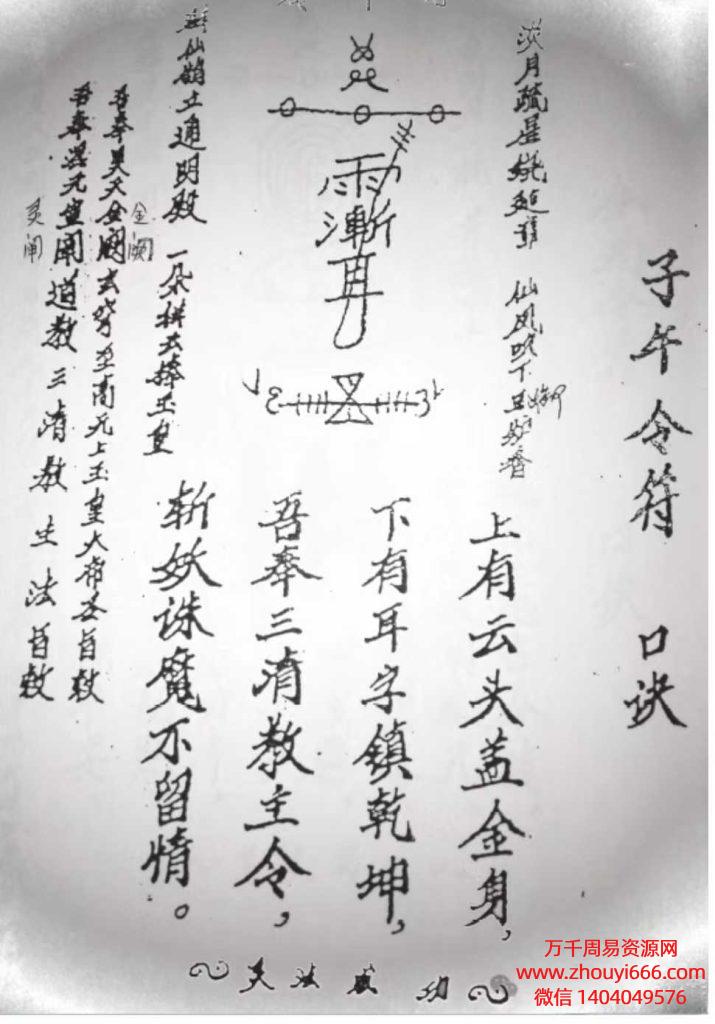 子午令符 口诀
上有云头盖金身,
下有耳字镇乾坤,
吾奉三清教主令,
斩妖诛魔不留情。
淡月疏星绕建章 仙风吹下玉炉香
御
雨渐耳
仙鹤立通明殿 一朵拱去捧玉皇
吾奉昊天金阙玄穹至高元上玉皇大帝圣旨敕
金阙
吾奉混元皇闱道教三清教主法旨敕
灵闱
灵法威功
万千周易资源网
www.zhouyi666.com
微信 1404049576